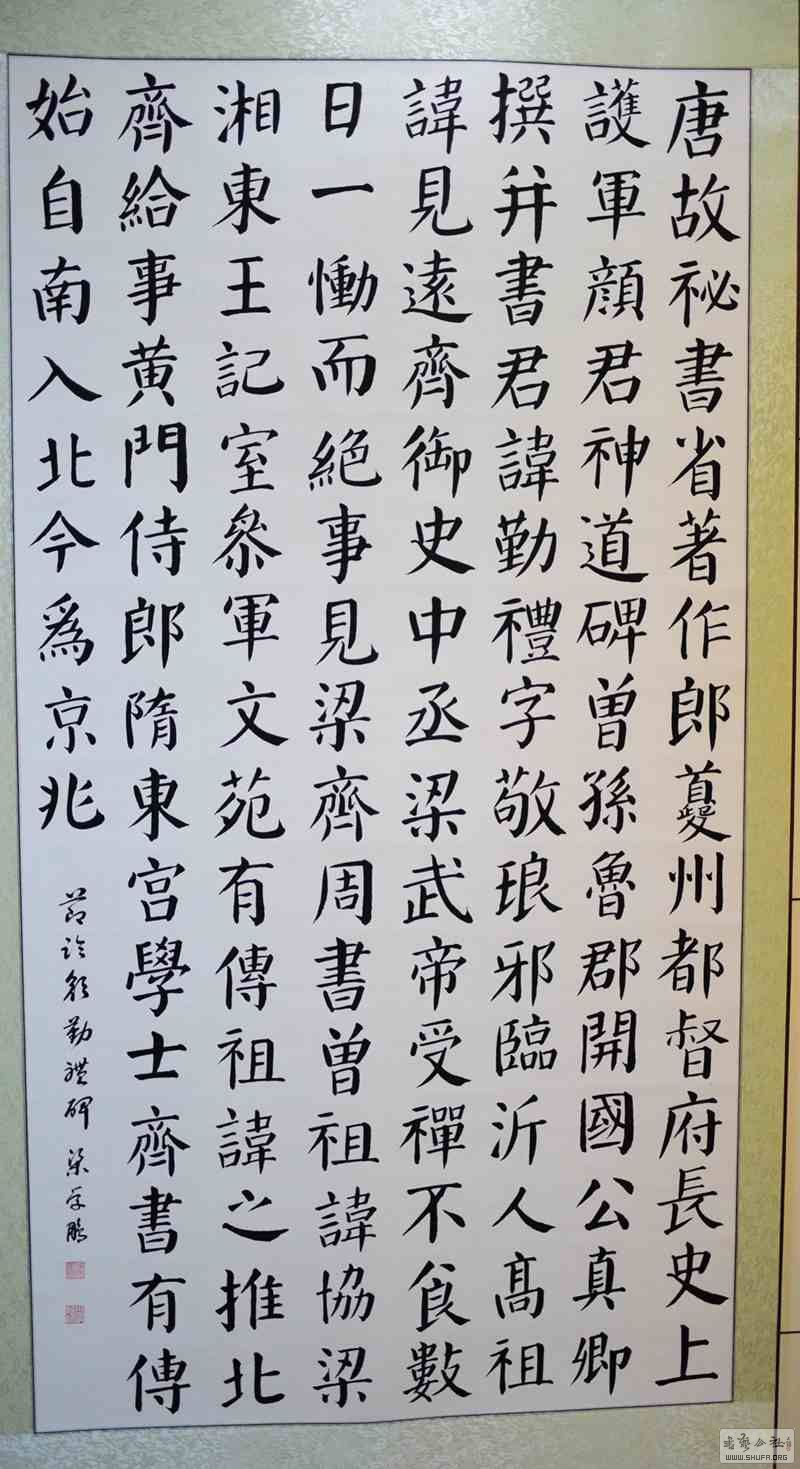 唐故祕書省著作郎夔州都督府長史上
護軍顔君神道碑曾孫魯郡開國公真卿
撰并書君諱勤禮字敬琅邪臨沂人髙祖
諱見遠齊御史中丞梁武帝受禪不食數
日一慟而絶事見梁齊周書曾祖諱協梁
湘東王記室叅軍文苑有傳祖諱之推北
齊給事黄門侍郎隋東宮學士齊書有傳
始自南入北今爲京兆
節临顔勤禮碑 梁学鵬
书藝公社
WWW.SHUFA.ORG